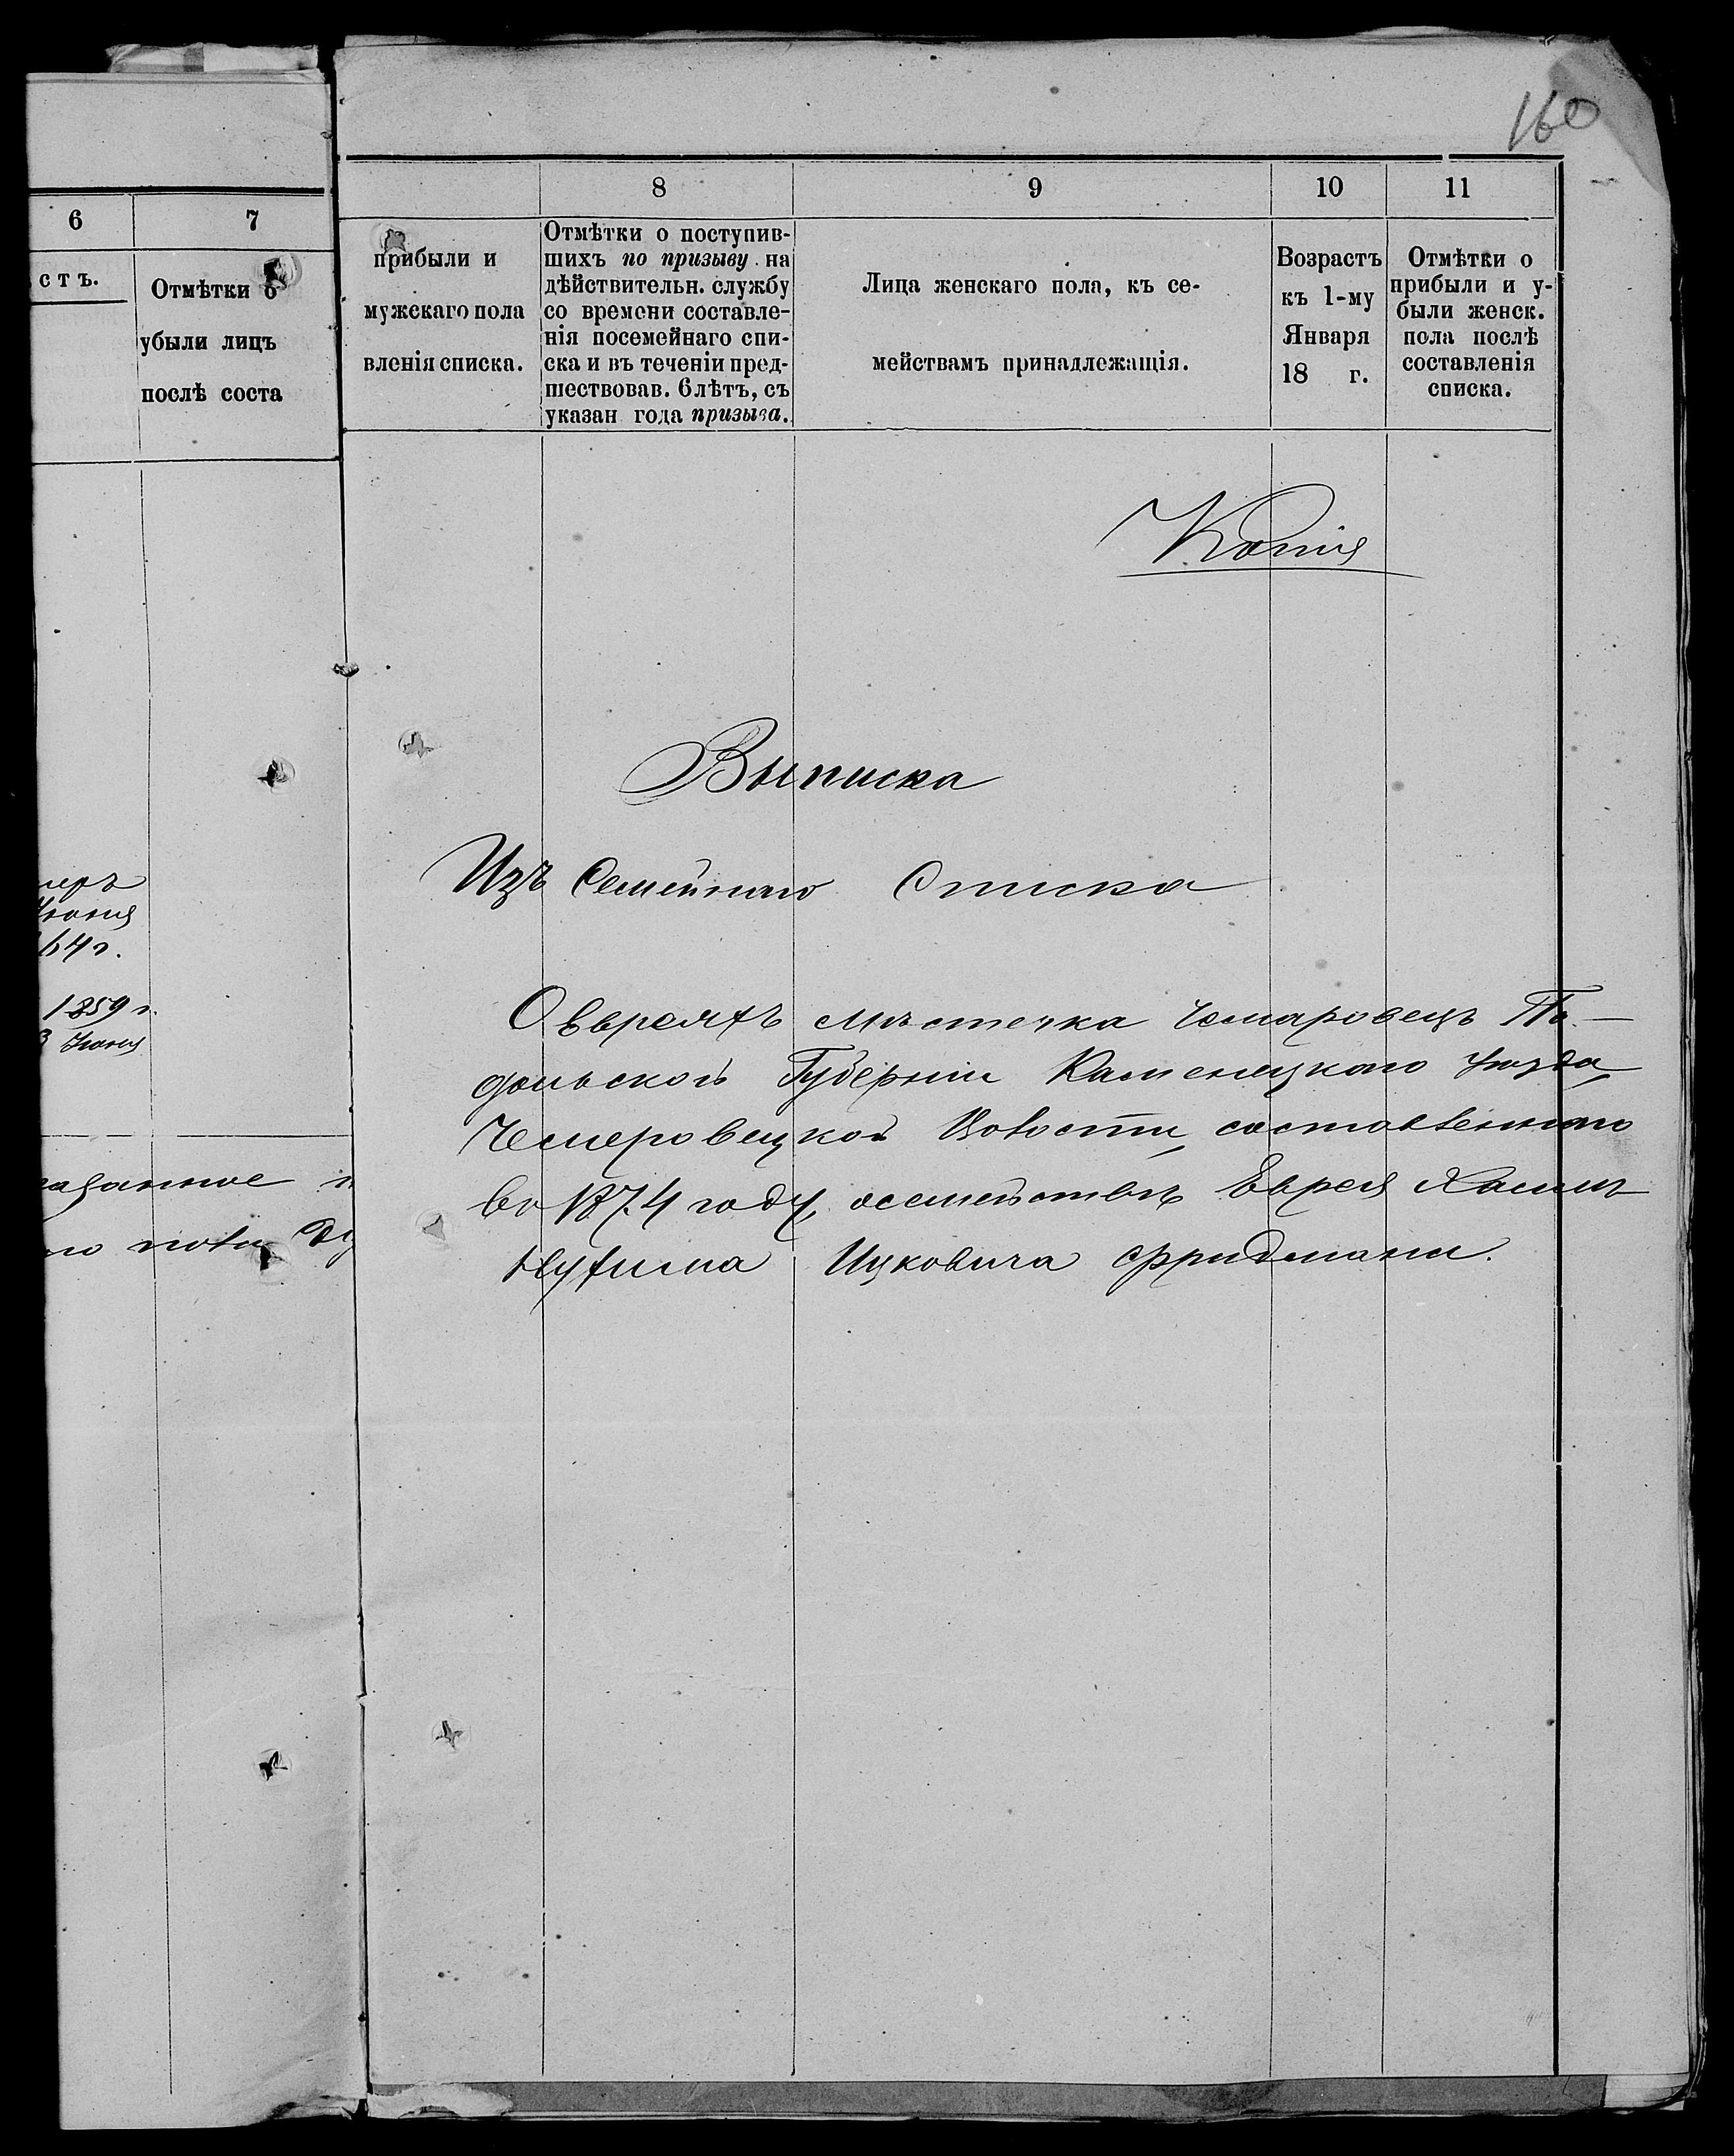 160
6 7
стъ.
Отмѣтки о
убыли лицъ
послѣ соста
меръ
Июня
64 г.
1859 г.
3 Июня
азанное
8 9 10 11
прибыли и
мужскаго пола
вленія списка.
Отмѣтки о поступив-
шихъ по призыву на
дѣйствительн. службу
со времени составле-
нія посемейнаго спи-
ска и въ теченіи пред-
шествовав. 6 лѣтъ, съ
указан года призыва.
Лица женскаго пола, къ се-
мействамъ принадлежащія.
Возрастъ
къ 1-му
Января
18 г.
Отмѣтки о
прибыли и у-
были женск.
пола послѣ
составленія
списка.
Копія
Выписка
Изъ Семейнаго Списка
О Евреяхъ мѣстечка Чемаровецъ По-
дольской Губерніи Каменецкаго Уѣзда,
Чемеровецкой Волости, составленнаго
во 1874 году, о семействѣ Еврея Хаимъ
Нухима Ицковича Фридмана.